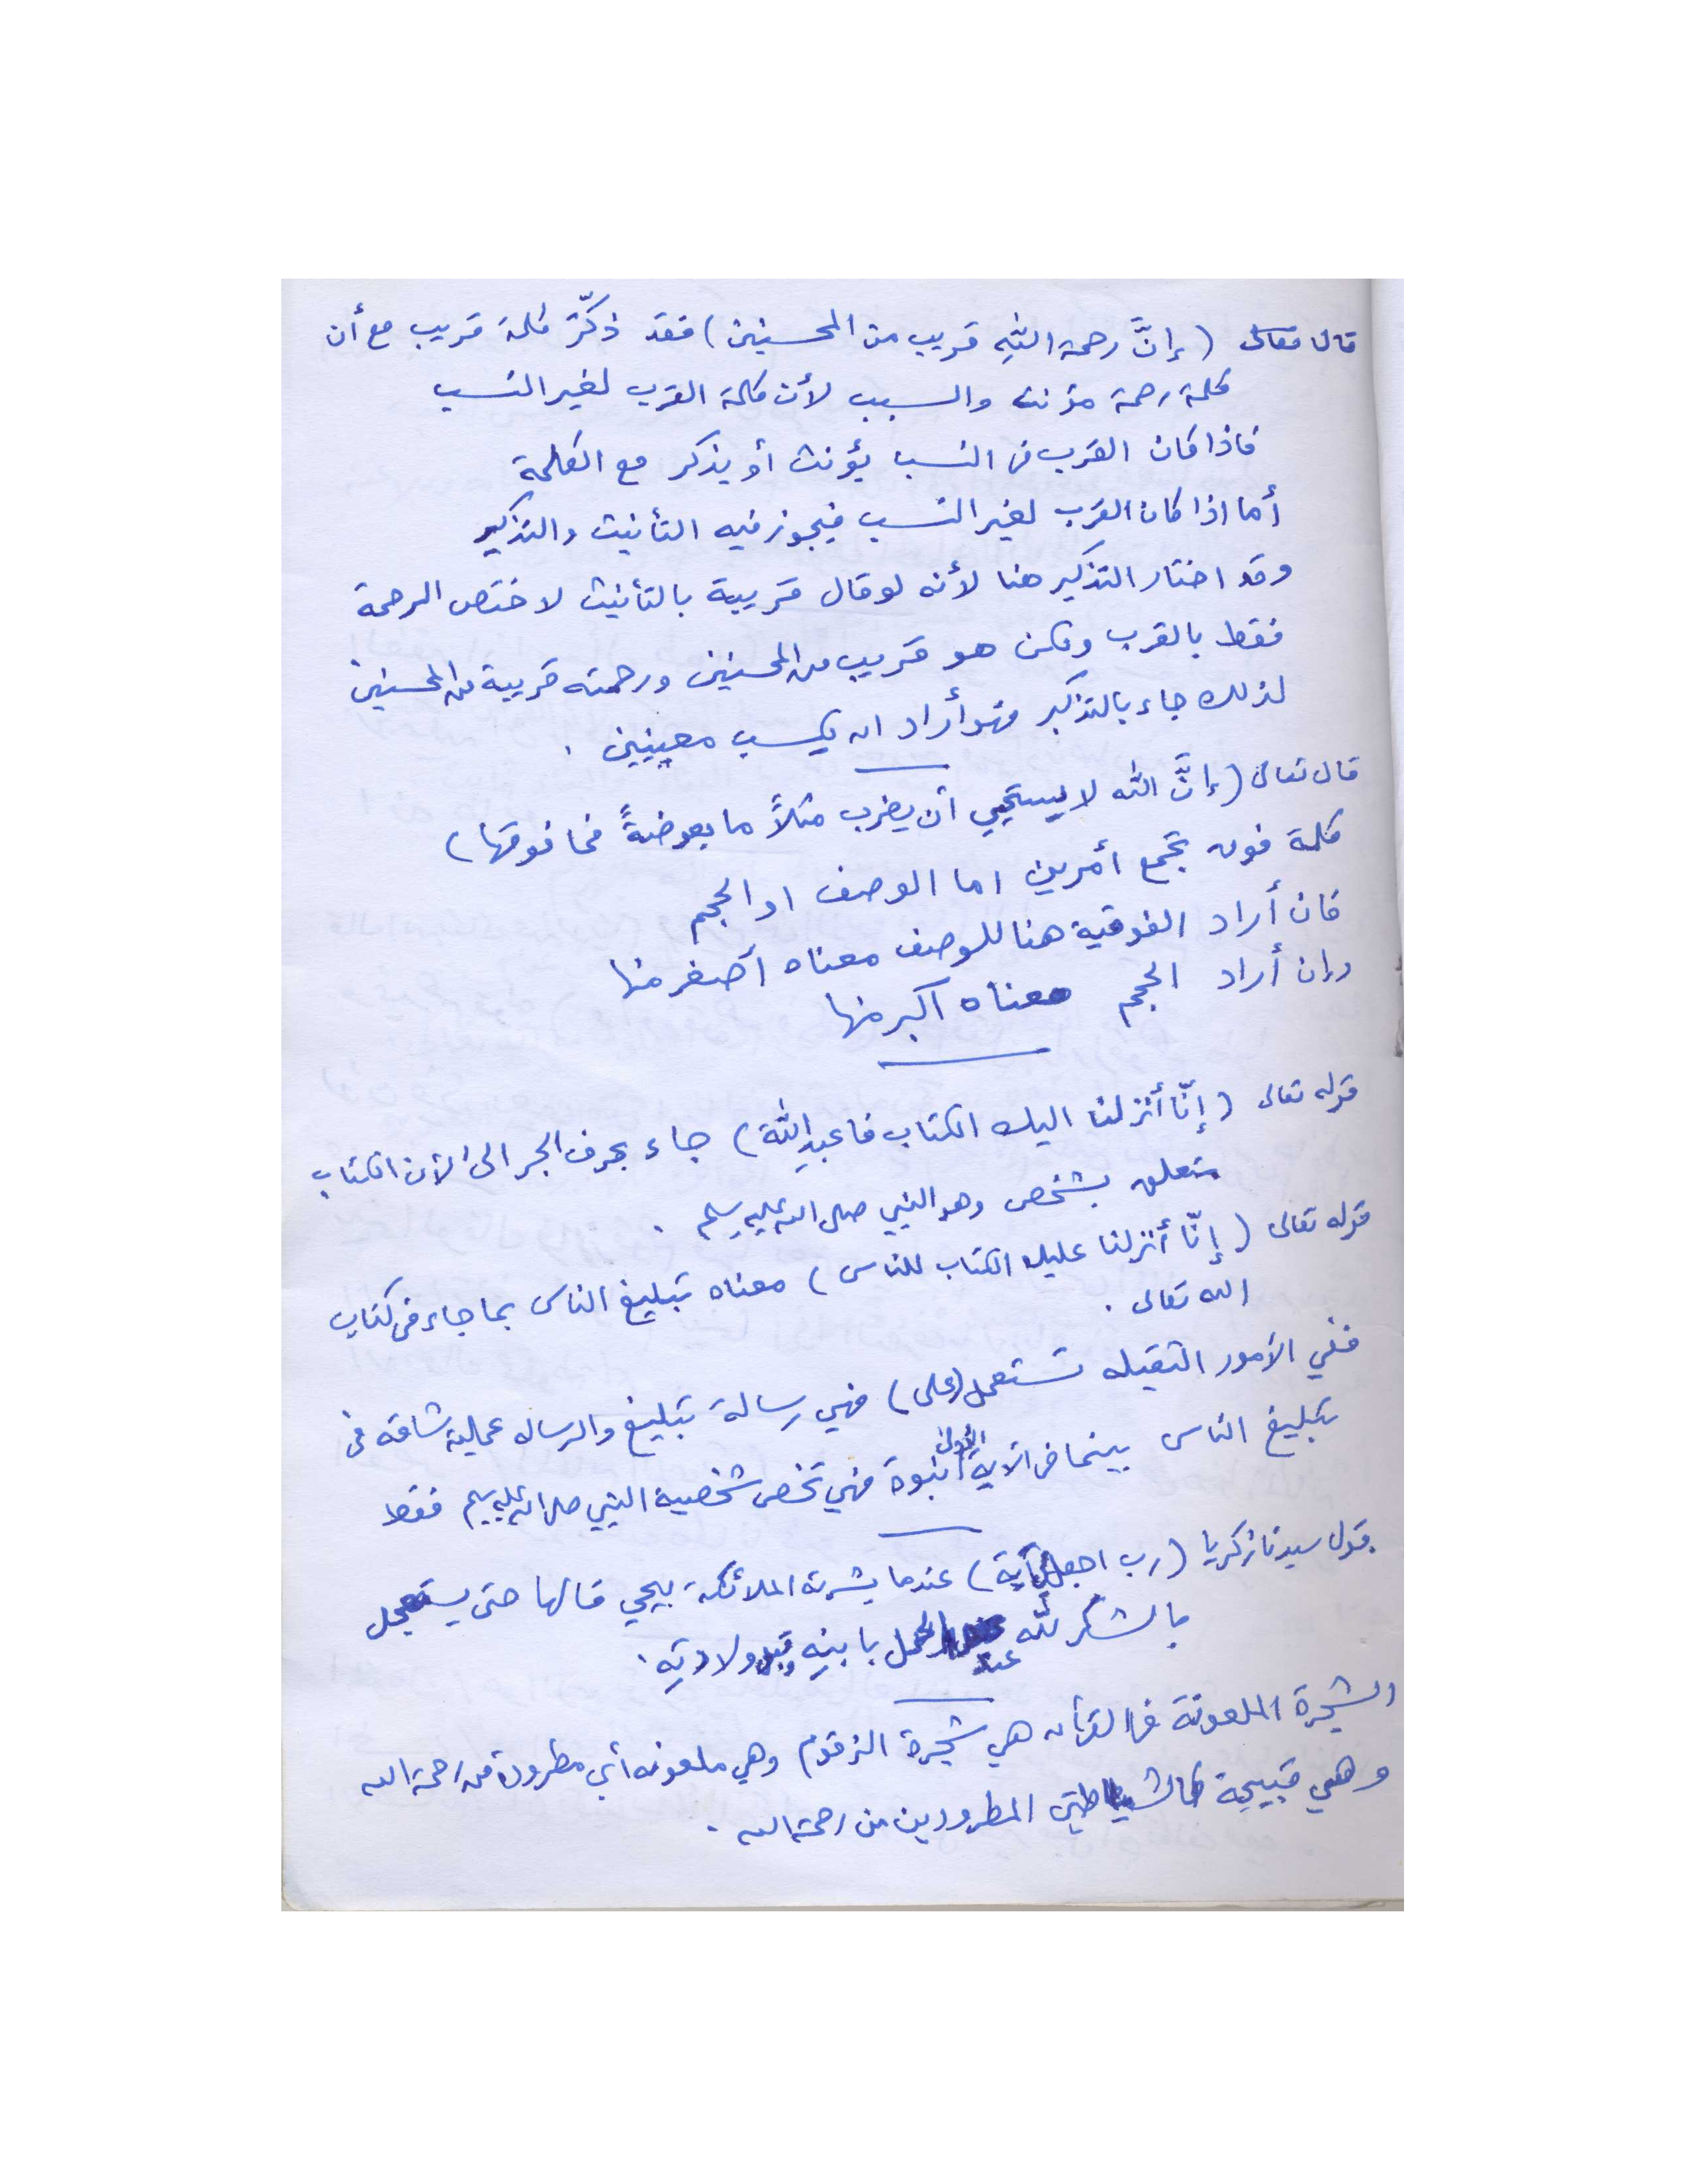 قال تعالى (إنَّ رحمة اللهِ قريب من المحسنين) فقد ذكّر كلمة قريب مع أن
كلمة رحمة مؤنث والسبب لأن كلمة القرب لغير النسب
فاذا كان القرب في النسب يؤنث أو يذكر مع الكلمة
أما اذا كان القرب لغير النسب فيجوز فيه التأنيث والتذكير
وقد اختار التذكير هنا لأنه لو قال قريبة بالتأنيث لاختص الرحمة
فقط بالقرب ولكن هو قريب من المحسنين ورحمته قريبة من المحسنين
لذلك جاء بالتذكير فهو أراد ان يكسب معنيين .
قال تعالى (إنَّ الله لا يستحيي أن يضرب مثلاً ما بعوضةً فما فوقها)
كلمة فوق تجمع أمرين اما الوصف او الحجم
فان أراد الفوقية هنا للوصف معناه أصغر منها
وإن أراد الحجم معناه أكبر منها
قوله تعالى (إنّا أنزلنا اليك الكتاب فاعبدِ اللهَ) جاء بحرف الجر الى لأن الكتاب
متعلق بشخص وهو النبي صلى الله عليه وسلم .
قوله تعالى (إنّا أنزلنا عليك الكتاب للناس) معناه تبليغ الناس بما جاء في كتاب
الله تعالى .
ففي الأمور الثقيله تستعمل (على) فهي رسالة تبليغ والرساله عملية شاقه في
تبليغ الناس بينما في الآية الأولى نبوة فهي تخص شخصية النبي صلى الله عليه وسلم فقط
قول سيدنا زكريا (رب اجعل لي آية) عندما بشرته الملائكة بيحيي قالها حتى يستعجل
بالشكر لله عند الحمل بابنِه وقبل ولادتِه .
الشجرة الملعونة في القرآن هي شجرة الزقوم وهي ملعونه أي مطرودة من رحمة الله
وهي قبيحة كالشياطين المطرودين من رحمة الله .